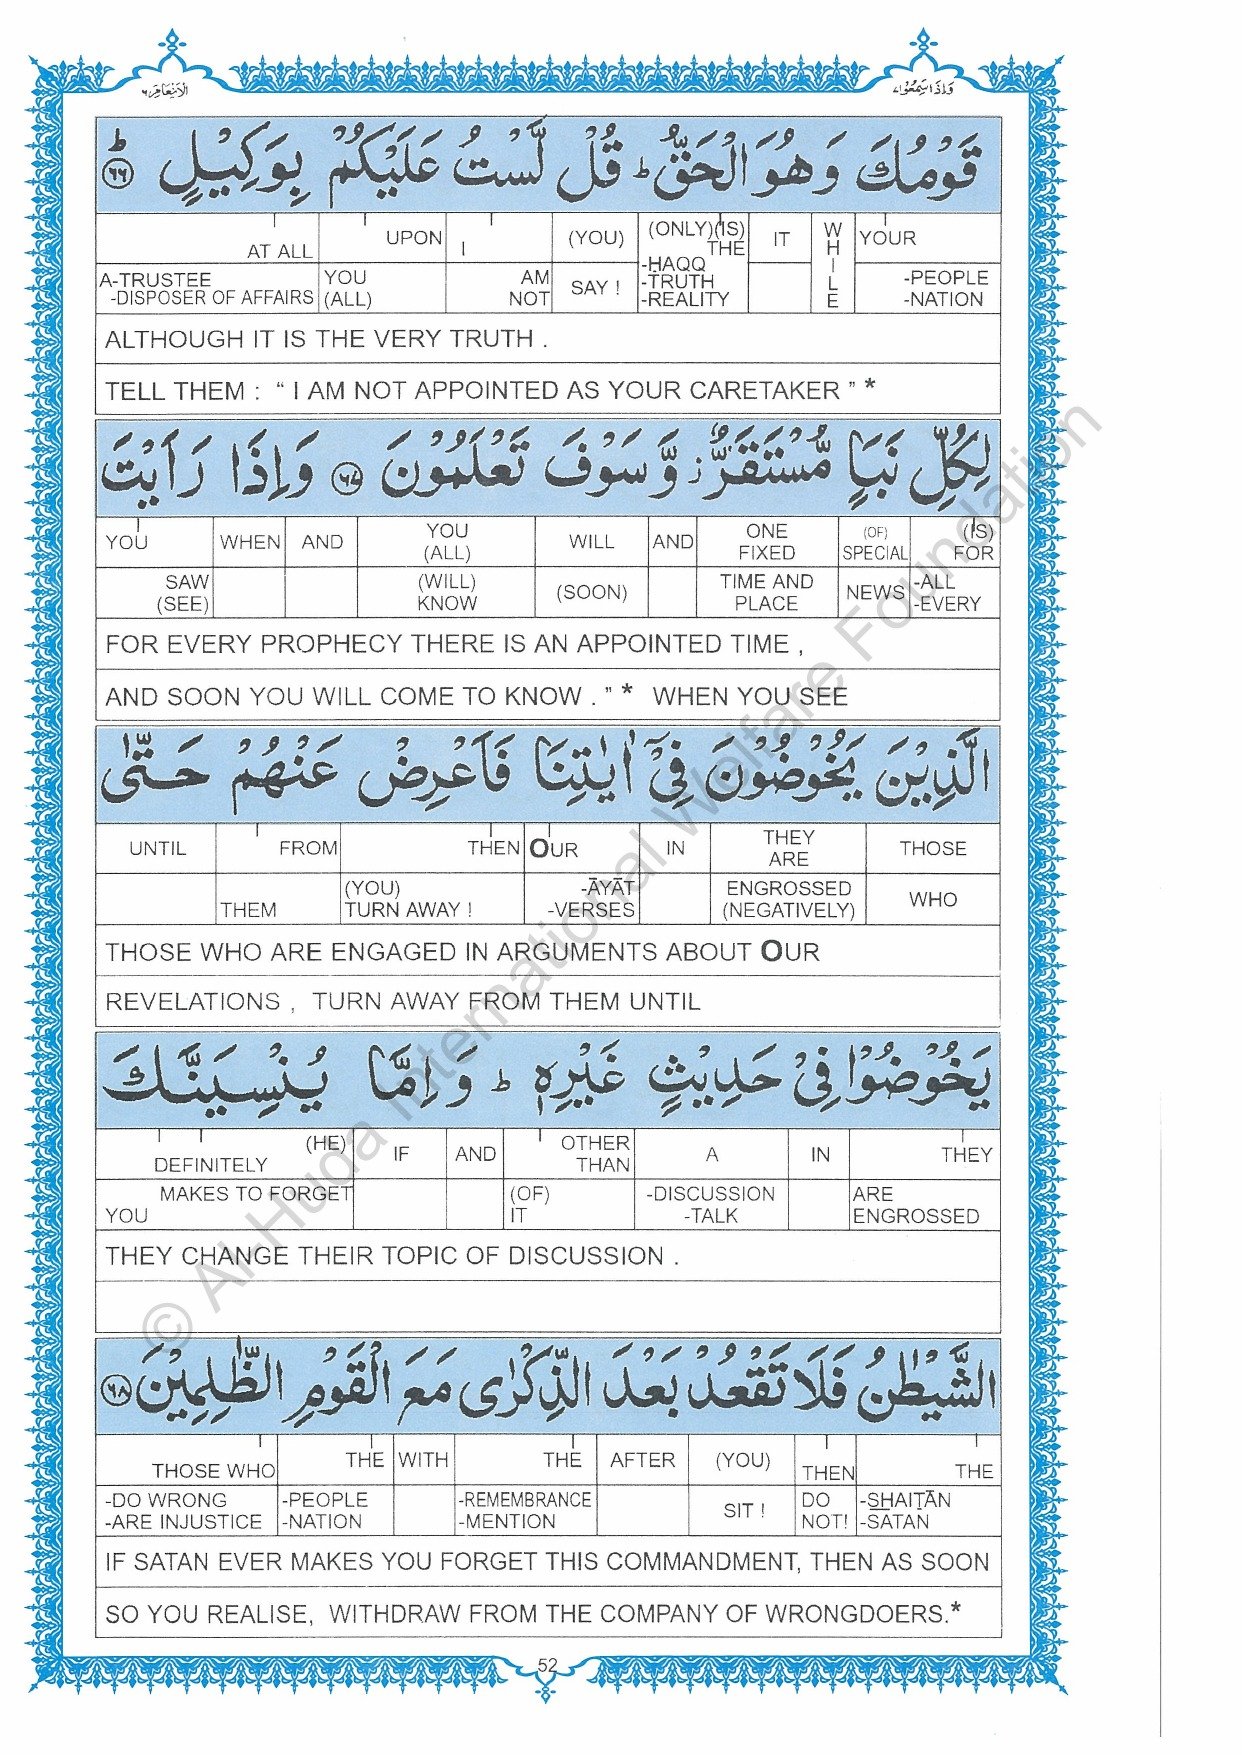 الانعام ٦
واذا سمعوا ٧
قَوْمُكَ وَهُوَ الْحَقُّ ؕ قُلْ لَّسْتُ عَلَيْكُمْ بِوَكِيْلٍ ؕ ﴿٦٦﴾
AT ALL UPON I (YOU) (ONLY)(IS) THE IT WHILE YOUR
A-TRUSTEE -DISPOSER OF AFFAIRS YOU (ALL) AM NOT SAY ! -HAQQ -TRUTH -REALITY -PEOPLE -NATION
ALTHOUGH IT IS THE VERY TRUTH .
TELL THEM : “ I AM NOT APPOINTED AS YOUR CARETAKER ” *
لِكُلِّ نَبَاٍ مُّسْتَقَرٌّ ز وَّسَوْفَ تَعْلَمُوْنَ ﴿٦٧﴾ وَاِذَا رَاَيْتَ
YOU WHEN AND YOU (ALL) WILL AND ONE FIXED (OF) SPECIAL (IS) FOR
SAW (SEE) (WILL) KNOW (SOON) TIME AND PLACE NEWS -ALL -EVERY
FOR EVERY PROPHECY THERE IS AN APPOINTED TIME ,
AND SOON YOU WILL COME TO KNOW . ” * WHEN YOU SEE
الَّذِيْنَ يَخُوْضُوْنَ فِيْٓ اٰيٰتِنَا فَاَعْرِضْ عَنْهُمْ حَتّٰى
UNTIL FROM THEN OUR IN THEY ARE THOSE
THEM (YOU) TURN AWAY ! -ĀYĀT -VERSES ENGROSSED (NEGATIVELY) WHO
THOSE WHO ARE ENGAGED IN ARGUMENTS ABOUT OUR
REVELATIONS , TURN AWAY FROM THEM UNTIL
يَخُوْضُوْا فِيْ حَدِيْثٍ غَيْرِهٖ ؕ وَاِمَّا يُنْسِيَنَّكَ
DEFINITELY (HE) IF AND OTHER THAN A IN THEY
YOU MAKES TO FORGET (OF) IT -DISCUSSION -TALK ARE ENGROSSED
THEY CHANGE THEIR TOPIC OF DISCUSSION .
الشَّيْطٰنُ فَلَا تَقْعُدْ بَعْدَ الذِّكْرٰى مَعَ الْقَوْمِ الظّٰلِمِيْنَ ﴿٦٨﴾
THOSE WHO THE WITH THE AFTER (YOU) THEN THE
-DO WRONG -ARE INJUSTICE -PEOPLE -NATION -REMEMBRANCE -MENTION SIT ! DO NOT! -SHAIṬĀN -SATAN
IF SATAN EVER MAKES YOU FORGET THIS COMMANDMENT, THEN AS SOON
SO YOU REALISE, WITHDRAW FROM THE COMPANY OF WRONGDOERS.*
52
© Al-Huda International Welfare Foundation